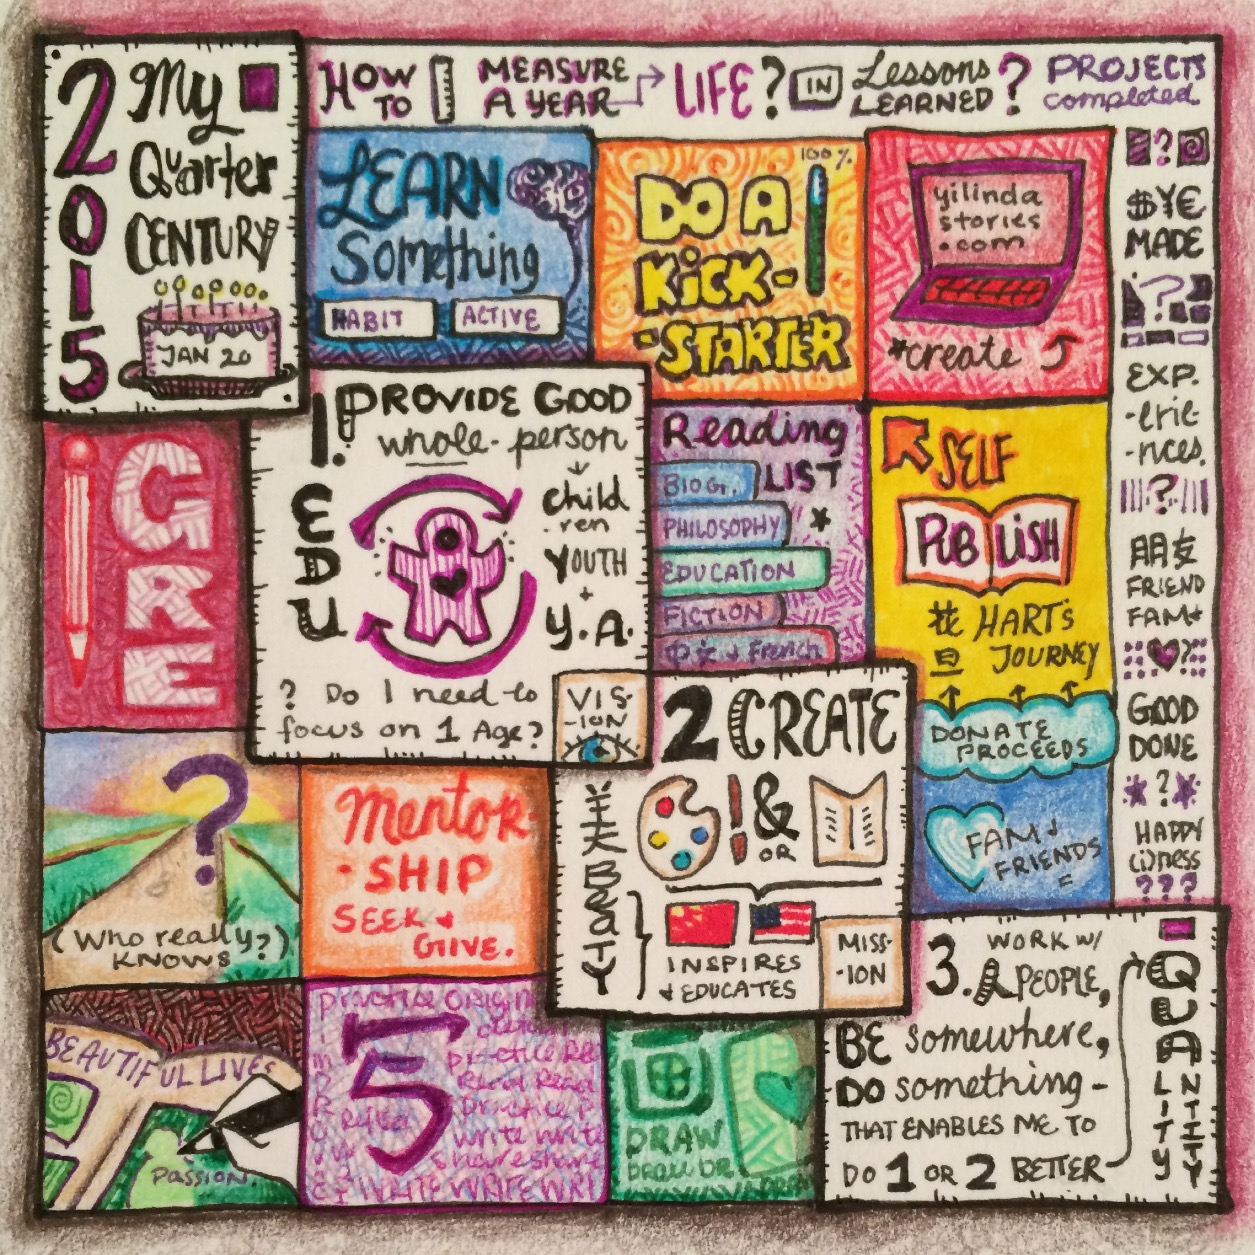 2015
My
Quarter
CENTURY
JAN 20
HOW TO MEASURE A YEAR → LIFE? IN Lessons LEARNED? PROJECTS completed
LEARN
Something
HABIT
ACTIVE
100%
DO A
KICK-
-STARTER
yilinda
stories
.com
*create
?
$¥€
MADE
?
EXP.
-erie-
-nces.
?
朋友
FRIEND
FAM+
?
GOOD
DONE
*?*
HAPPY
(i)ness
???
GRE
1. EDU
PROVIDE GOOD
whole-person
child
-ren
YOUTH
+
Y.A.
? Do I need to
focus on 1 Age?
VIS-
-ION
Reading
LIST
BIOG.
PHILOSOPHY
EDUCATION
FICTION
中文 + French
SELF
PUBLISH
HART'S
JOURNEY
DONATE
PROCEEDS
FAM +
FRIENDS
?
(Who really?)
KNOWS
Mentor-
-SHIP
SEEK +
GIVE.
2 CREATE
! & OR
美 BEaUTY
INSPIRES
+ EDUCATES
MISS-
-ION
BEAUTIFUL LIVES
PASSION.
5
practice
WRITE WRITE
share share
WRITE WRITE
DRAW
3. WORK W/
PEOPLE,
BE somewhere,
DO something-
THAT ENABLES ME TO
DO 1 OR 2 BETTER
QUALITY
QUANTITY